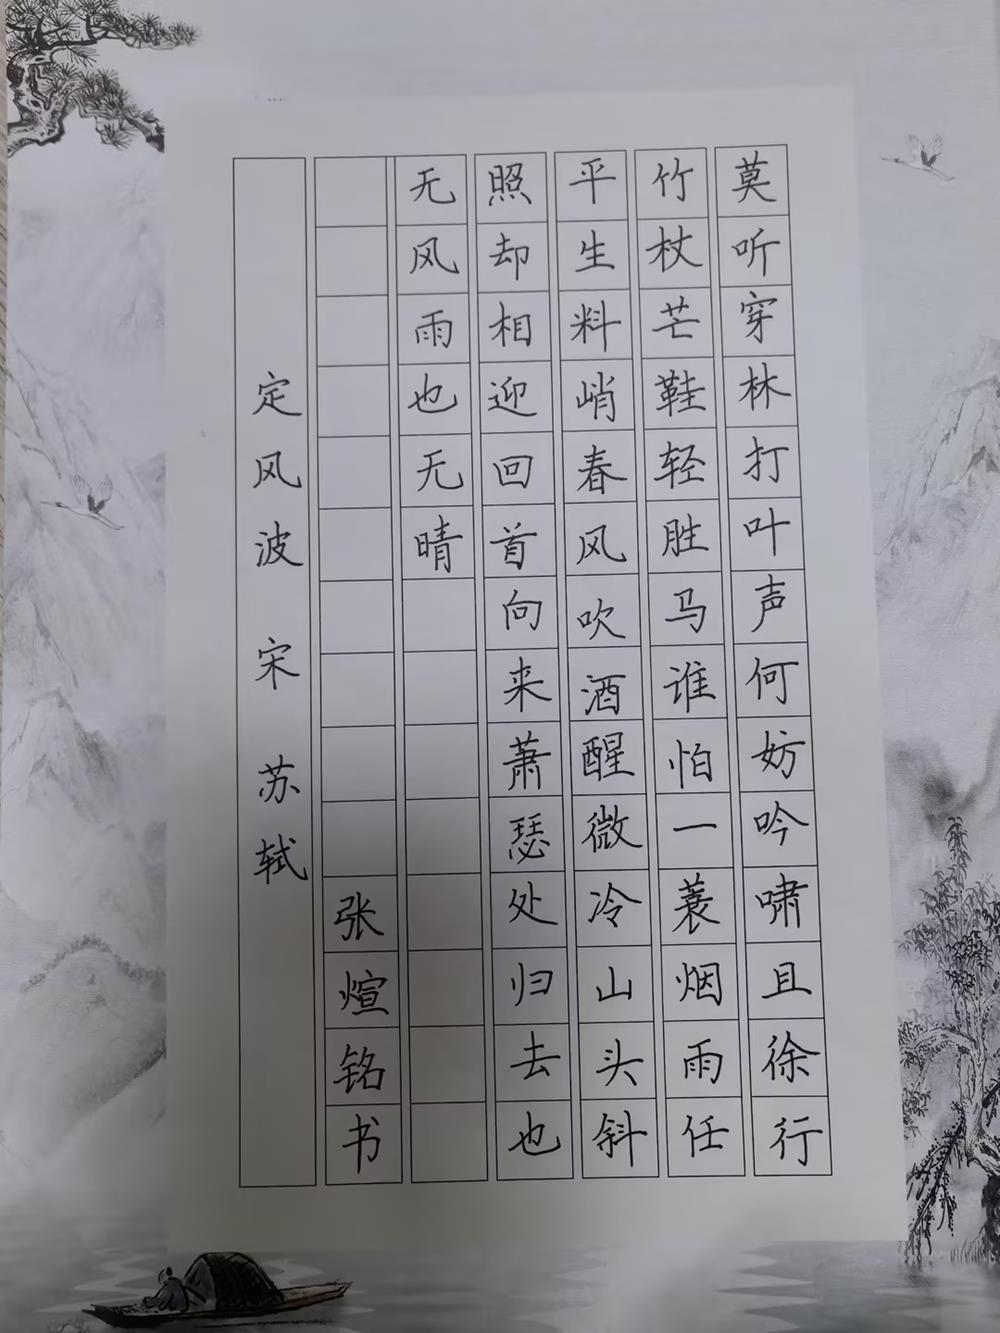 莫听穿林打叶声何妨吟啸且徐行
竹杖芒鞋轻胜马谁怕一蓑烟雨任
平生料峭春风吹酒醒微冷山头斜
照却相迎回首向来萧瑟处归去也
无风雨也无晴
张煊铭书
定风波 宋 苏轼